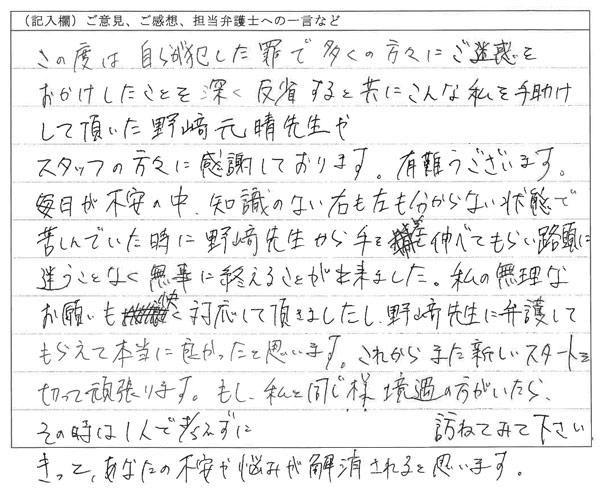 （記入欄）ご意見、ご感想、担当弁護士への一言など
この度は自らが犯した罪で多くの方々にご迷惑を
おかけしたことを深く反省すると共にこんな私を手助け
して頂いた野﨑元晴先生や
スタッフの方々に感謝しております。有難うございます。
毎日が不安の中、知識のない右も左も分からない状態で
苦しんでいた時に野﨑先生から手を差し伸べてもらい路頭に
迷うことなく無事に終えることが出来ました。私の無理な
お願いも快く対応して頂きましたし、野﨑先生に弁護して
もらえて本当に良かったと思います。これからまた新しいスタートを
切って頑張ります。もし、私と同じ様境遇の方がいたら、
その時は1人で考えずに 訪ねてみて下さい
きっと、あなたの不安や悩みが解消されると思います。